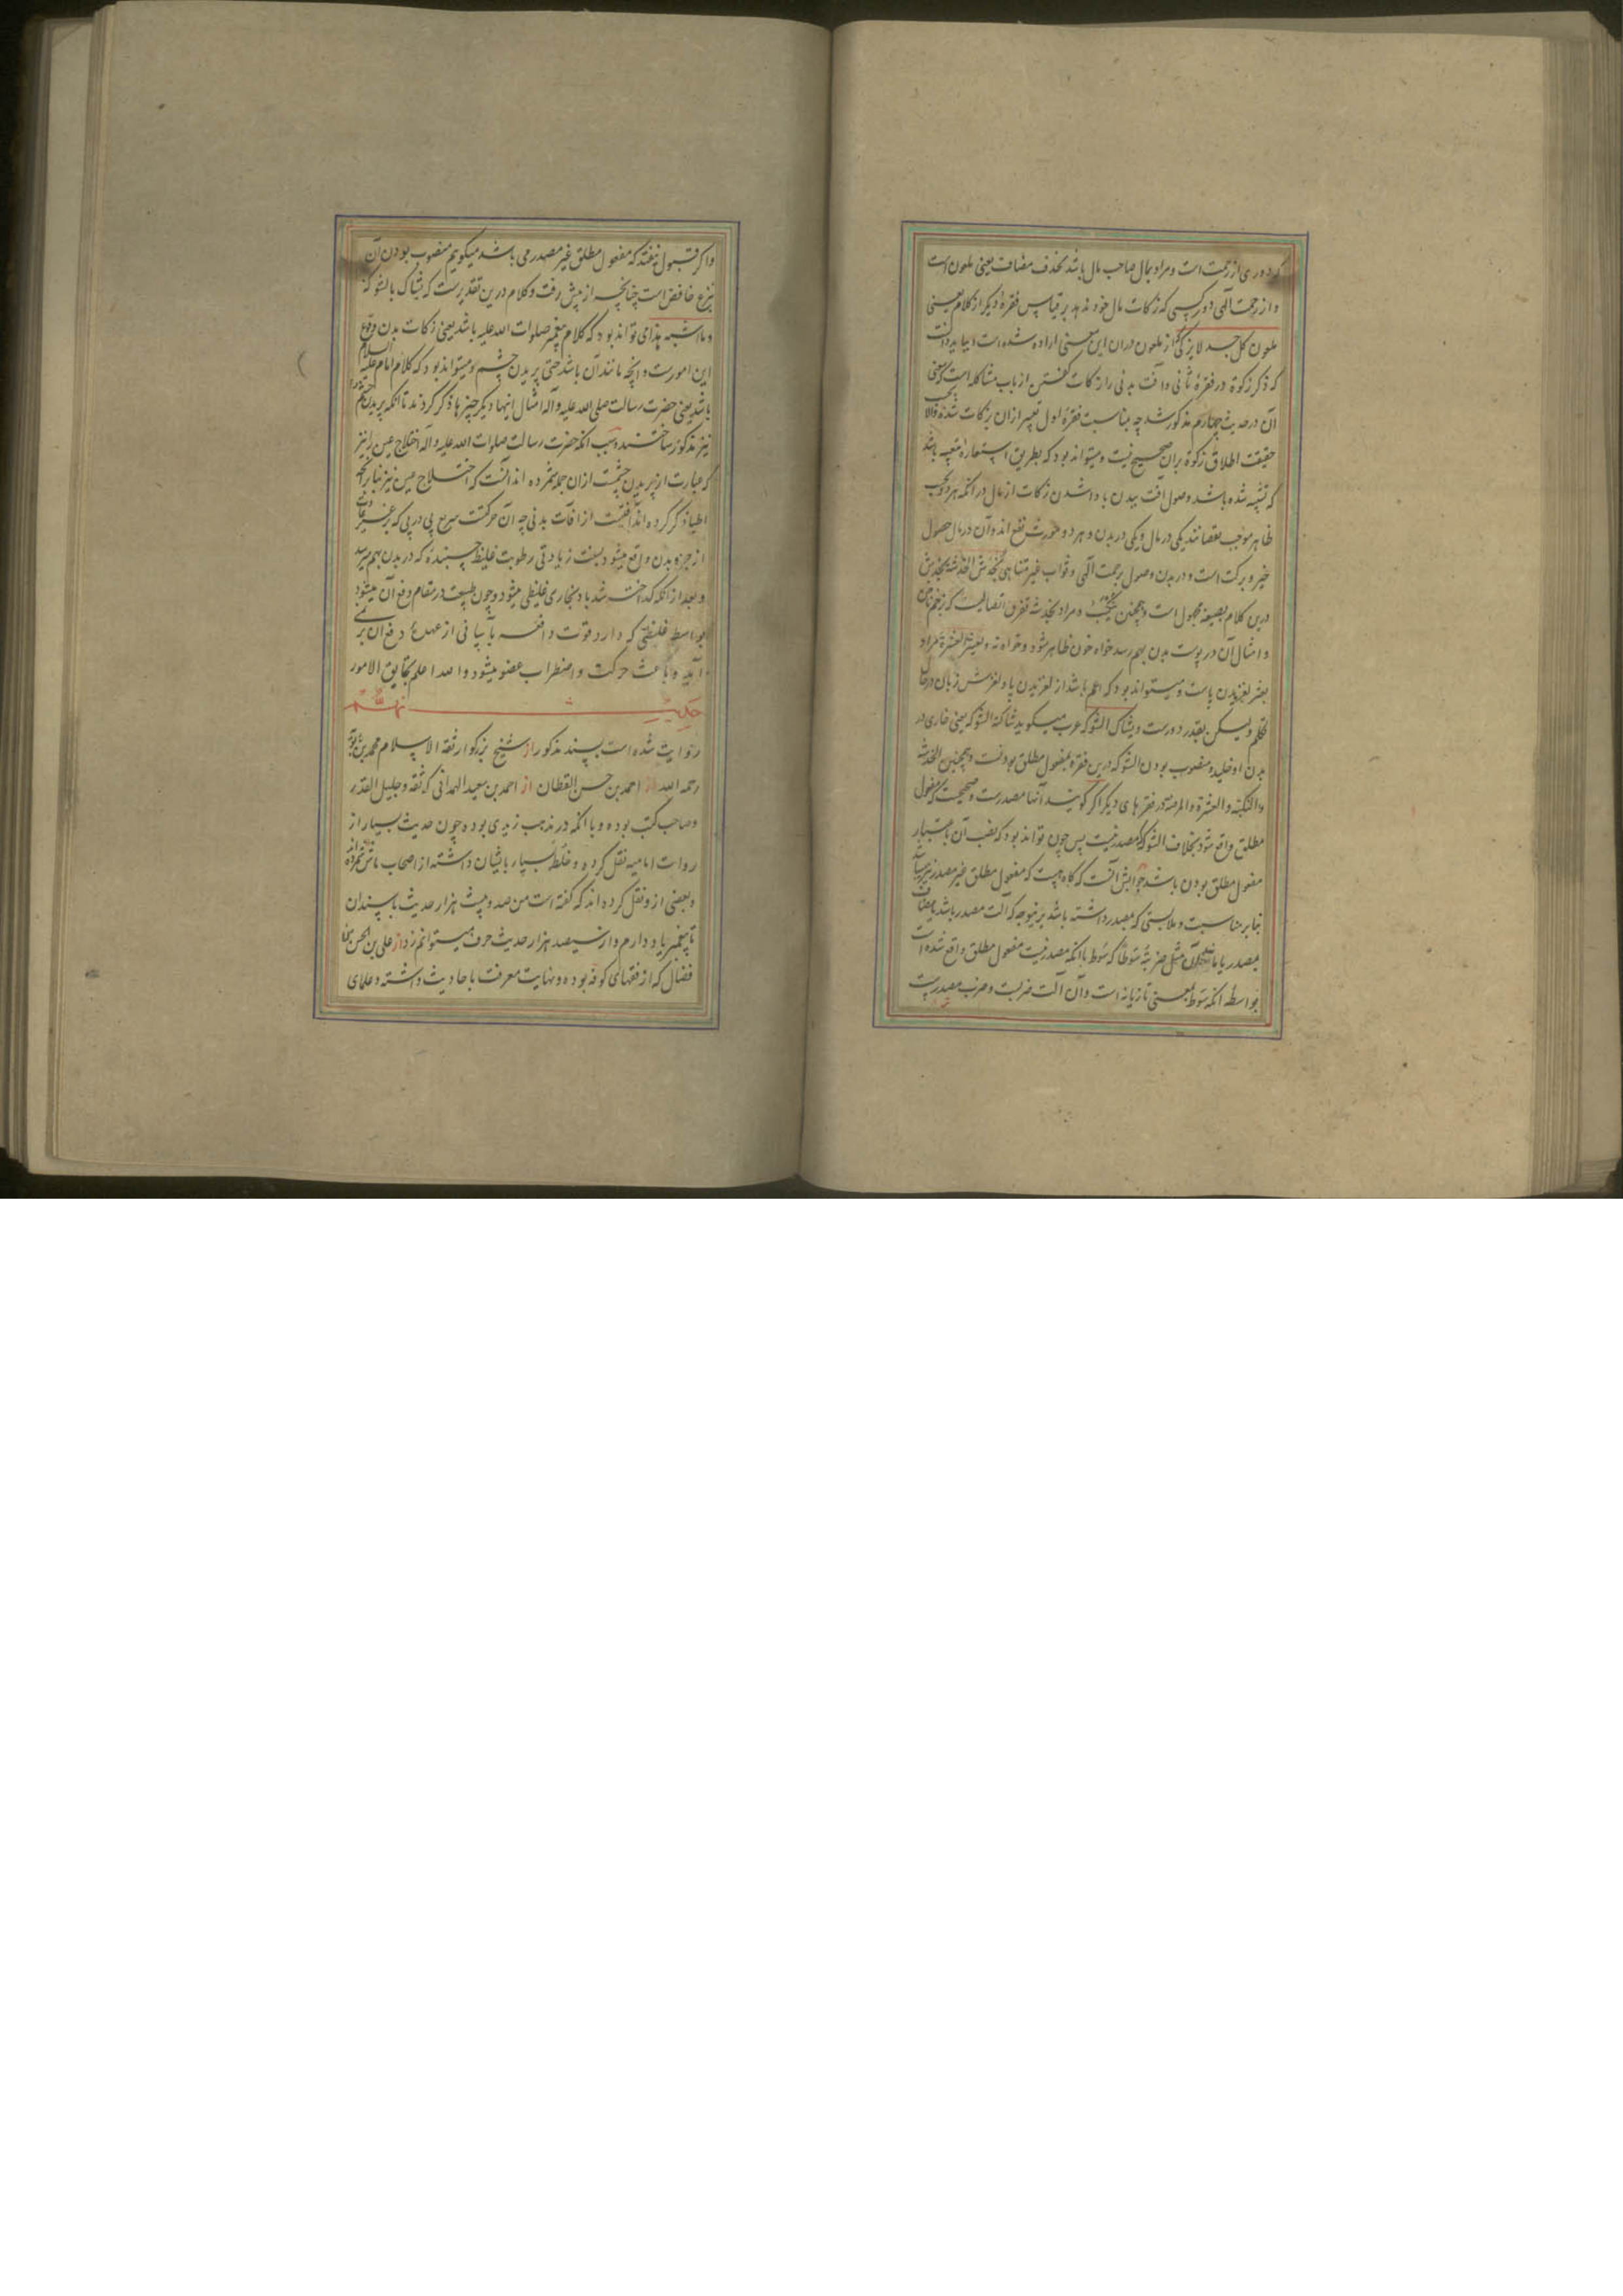 که دوری از رحمت است و مراد بمال صاحب مال باشد بحذف مضاف یعنی ملعون است
و از رحمت الهی دور کسی که زکات مال خود ندهد بر قیاس فقرهٔ دیگر از کلام یعنی
ملعون کل جسد لا یزکی از ملعون در ان این معنی اراده شده است و بباید دانست
که ذکر زکوة در فقرهٔ ثانی و آفت بدنی را زکات گفتن از باب مشاکله است که معنی
آن در حدیث چهارم مذکور شد چه بمناسبت فقرهٔ اول تعبیر از ان بزکات شده و الا
حقیقت اطلاق زکوة بران صحیح نیست و میتواند بود که بطریق استعارهٔ تبعیه باشد
که تشبیه شده باشد وصول آفت ببدن با دا شدن زکات از مال در انکه هر دو بحسب
ظاهر موجب نقصانند یکی در مال و یکی در بدن و هر دو صورت نفع اند و آن در مال حصول
خیر و برکت است و در بدن وصول برحمت الهی و ثواب غیر متناهی یخدش الخدشة یخدش
درین کلام بصیغهٔ مجهول است و همچنین ینکب و مراد بخدشه تفرق اتصالیست که بزخم ناخن
و امثال آن در پوست بدن بهم رسد خواه خون ظاهر شود و خواه نه و یعثر العثرة مراد
بعثر لغزیدن پاست و میتواند بود که اعم باشد از لغزیدن پا و لغزش زبان در حال
تکلم ولیکن بقدر دورست و یشاک الشوکه عرب میگوید شاکته الشوکه یعنی خاری در
بدن او خلید و منصوب بودن الشوکه درین فقره بمفعول مطلق بودنست و همچنین الخدشة
و النکبة و العثرة و المرضة در فقرهای دیگر اگر گویند آنها مصدرست و صحیحست که مفعول
مطلق واقع شود بخلاف الشوکه که مصدر نیست پس چون تواند بود که نصب آن باعتبار
مفعول مطلق بودن باشد جوابش آنست که گاه هست که مفعول مطلق غیر مصدر نیز میباشد
بنابر مناسبت و ملابستی که بمصدر داشته باشد برینوجه که آلت مصدر باشد یا مضاف
بمصدر یا مانند آن مثل ضربته سوطا که سوط با انکه مصدر نیست مفعول مطلق واقع شده است
بواسطه انکه سوط بمعنی تازیانه است و آن آلت ضربت و ضرب مصدرست
و اگر قبول نیفتد که مفعول مطلق غیر مصدر می باشد میگوییم منصوب بودن آن
بنزع خافض است چنانچه از پیش رفت و کلام درین تقدیرست که یشاک بالشوکة
و ما اشبه هذا می تواند بود که کلام پیغمبر صلوات الله علیه باشد یعنی زکات بدن وقوع
این امورست و انچه مانند آن باشد حتی پریدن چشم و میتواند بود که کلام امام علیه السلام
باشد یعنی حضرت رسالت صلی الله علیه و آله امثال اینها دیگر چیزها ذکر کردند تا انکه پریدن چشم را
نیز مذکور ساختند و سبب انکه حضرت رسالت صلوات الله علیه و آله اختلاج عین را نیز
که عبارت از پریدن چشمست از ان جمله شمرده اند انست که اختلاج عین نیز بنا بر انچه
اطبا ذکر کرده اند آفتیست از آفات بدنی چه آن حرکتست سریع پی در پی که بر غیر عادت
از جزو بدن واقع میشود بسبب زیادتی رطوبت غلیظ چسبنده که در بدن بهم رسد
و بعد از انکه گداخته شد باد بخاری غلیظی میشود و چون طبیعت در مقام دفع آن میشود
بواسطه غلیظی که دارد قوت دافعه بآسانی از عهدهٔ دفع آن بر نمی
آید و باعث حرکت و اضطراب عضو میشود و الله اعلم بحقایق الامور
حدیث نهم
روایت شده است بسند مذکور از شیخ بزرگوار ثقة الاسلام محمد بن بابویه
رحمه الله از احمد بن حسن القطان از احمد بن سعید الهمدانی که ثقه و جلیل القدر
و صاحب کتب بوده و با انکه در مذهب زیدی بوده چون حدیث بسیار از
روات امامیه نقل کرده و خلطهٔ بسیار بایشان داشته از اصحاب ماش شمرده اند
و بعضی از و نقل کرده اند که گفته است من صد و بیست هزار حدیث باسندان
تا پیغمبر یاد دارم و از سیصد هزار حدیث حرف میتوانم زد از علی بن الحسن بن
فضال که از فقهای کوفه بوده و نهایت معرفت باحادیث داشته و علمای